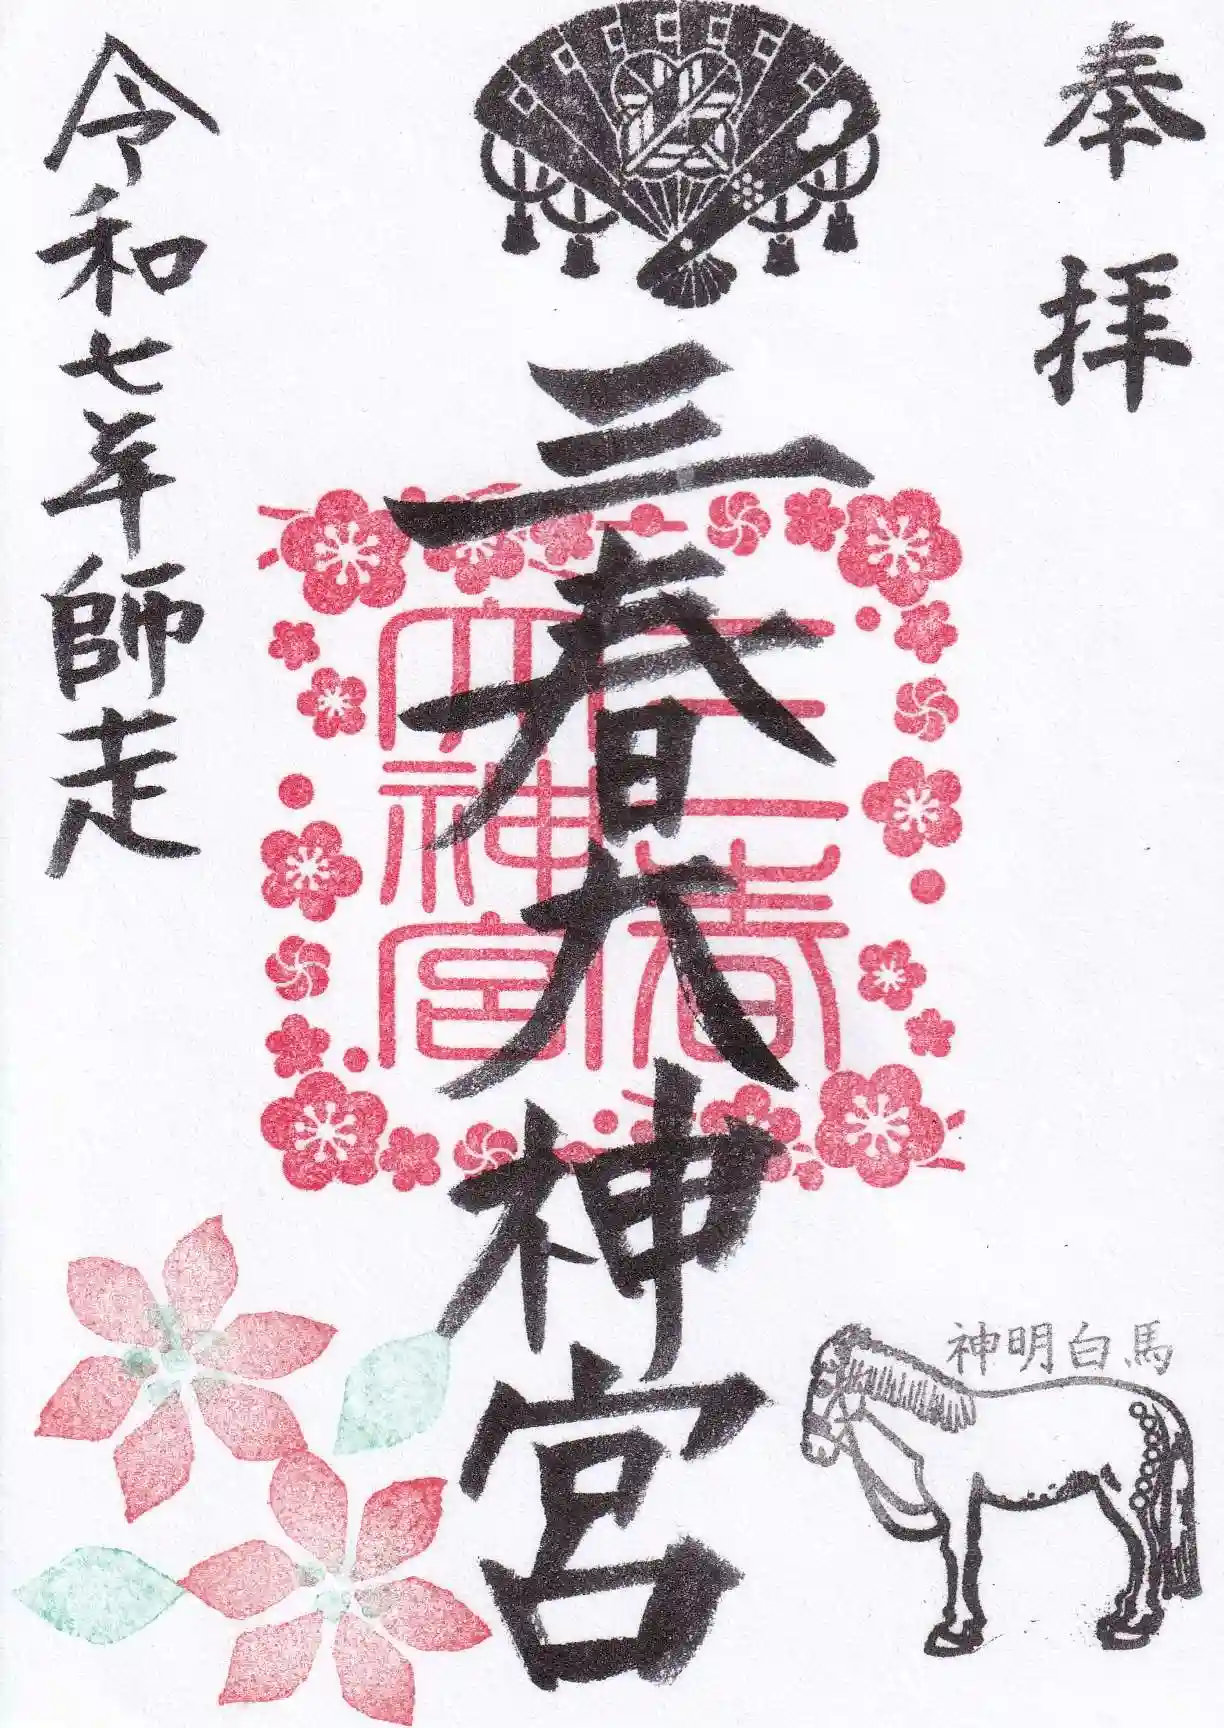 奉拝
三春大神宮
三春大神宮
神明白馬
令和七年師走